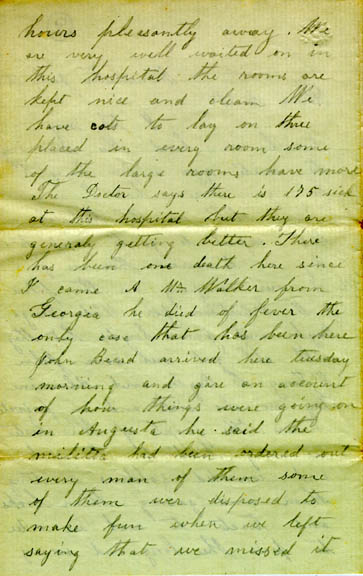 hours pleasantly away. We
are very well waited on in
this hospital the rooms are
kept nice and clean We
have cots to lay on three
placed in every room some
of the large rooms have more
The Doctor says there is 175 sick
at this hospital but they are
generaly getting better. There
has been one death here since
I came A Wm Walker from
Georgia he died of fever the
only case that has been here
John Beard arrived here tuesday
morning and gave an account
of how things were going on
in Augusta he said the
militia had been ordered out
every man of them some
of them wer disposed to
make fun when we left
saying that we missed it